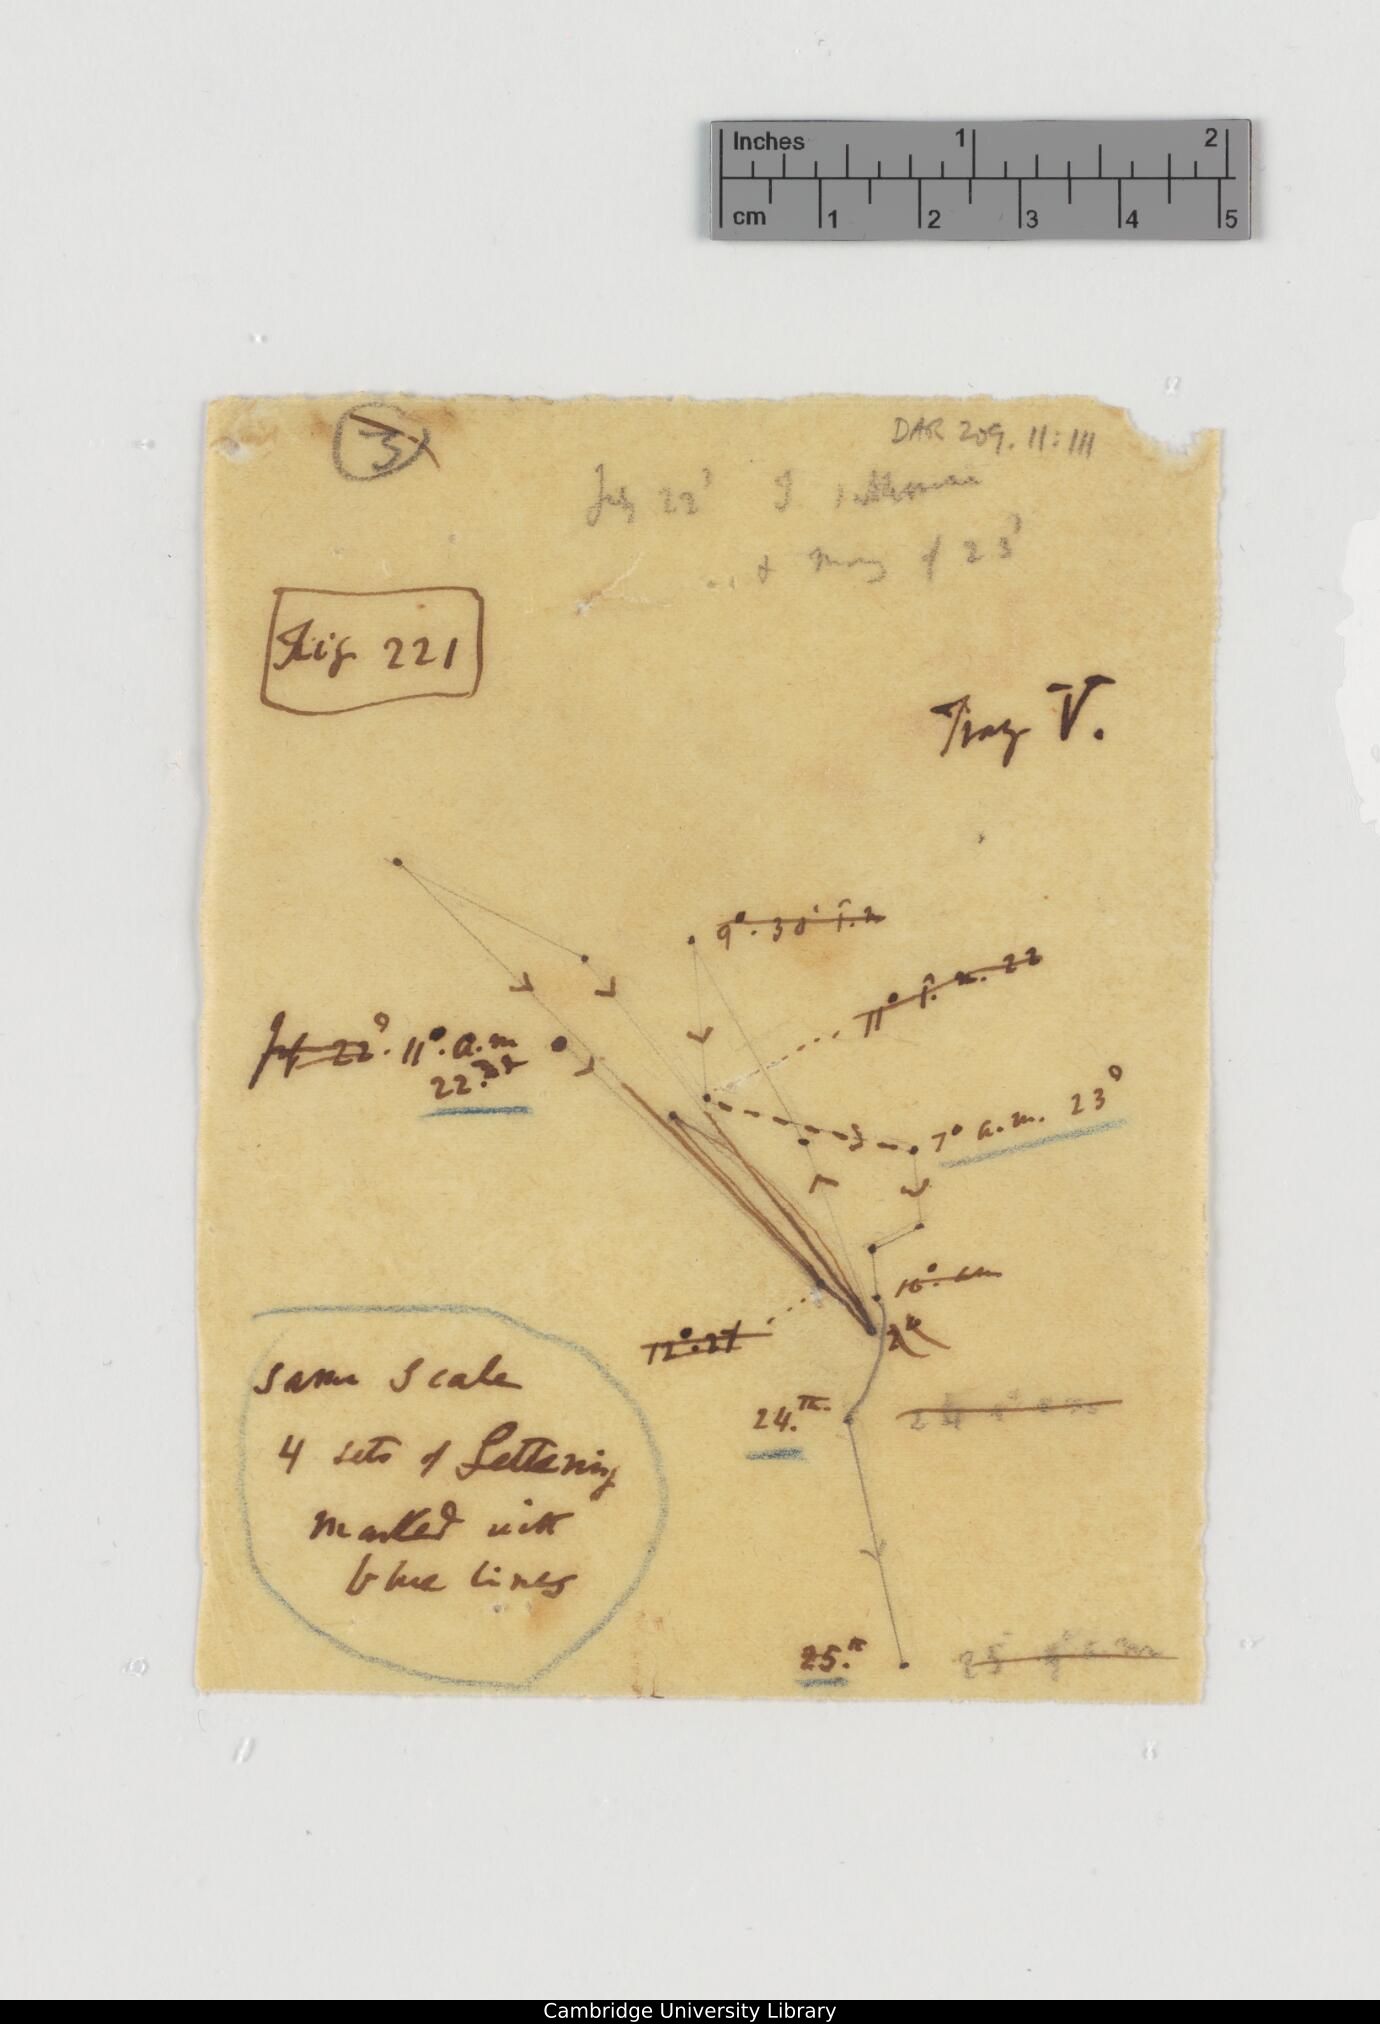 Inches 1 2
cm 1 2 3 4 5
3
DAR 209.11:111
July 22
of 23
Fig 221
V.
9°. 30' P.m
11° P.m. 22
July 22°. 11°. a.m
22.nd
7° a.m. 23°
10°. am
12°. 24
24.th
same scale
4 sets of Lettering
marked with
blue lines
25.th
25 9° a.m
Cambridge University Library